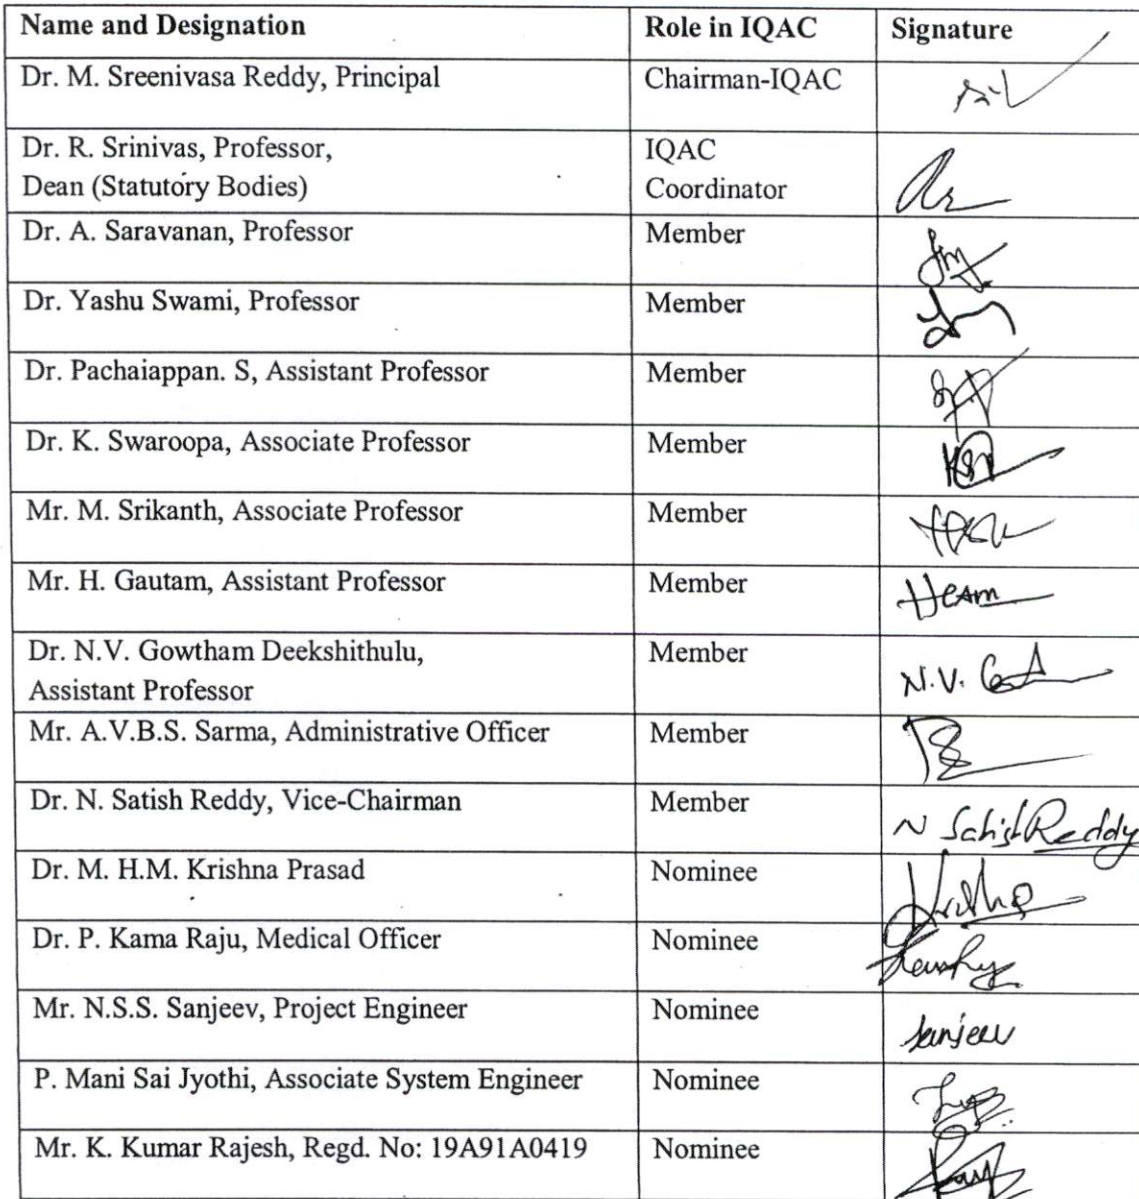 Name and Designation Role in IQAC Signature
Dr. M. Sreenivasa Reddy, Principal Chairman-IQAC
Dr. R. Srinivas, Professor, IQAC
Dean (Statutory Bodies) Coordinator
Dr. A. Saravanan, Professor Member
Dr. Yashu Swami, Professor Member
Dr. Pachaiappan. S, Assistant Professor Member
Dr. K. Swaroopa, Associate Professor Member
Mr. M. Srikanth, Associate Professor Member
Mr. H. Gautam, Assistant Professor Member
Dr. N.V. Gowtham Deekshithulu, Member
Assistant Professor N.V.
Mr. A.V.B.S. Sarma, Administrative Officer Member
Dr. N. Satish Reddy, Vice-Chairman Member
N Satish Reddy
Dr. M. H.M. Krishna Prasad Nominee
Dr. P. Kama Raju, Medical Officer Nominee
Mr. N.S.S. Sanjeev, Project Engineer Nominee
Sanjeev
P. Mani Sai Jyothi, Associate System Engineer Nominee
Mr. K. Kumar Rajesh, Regd. No: 19A91A0419 Nominee